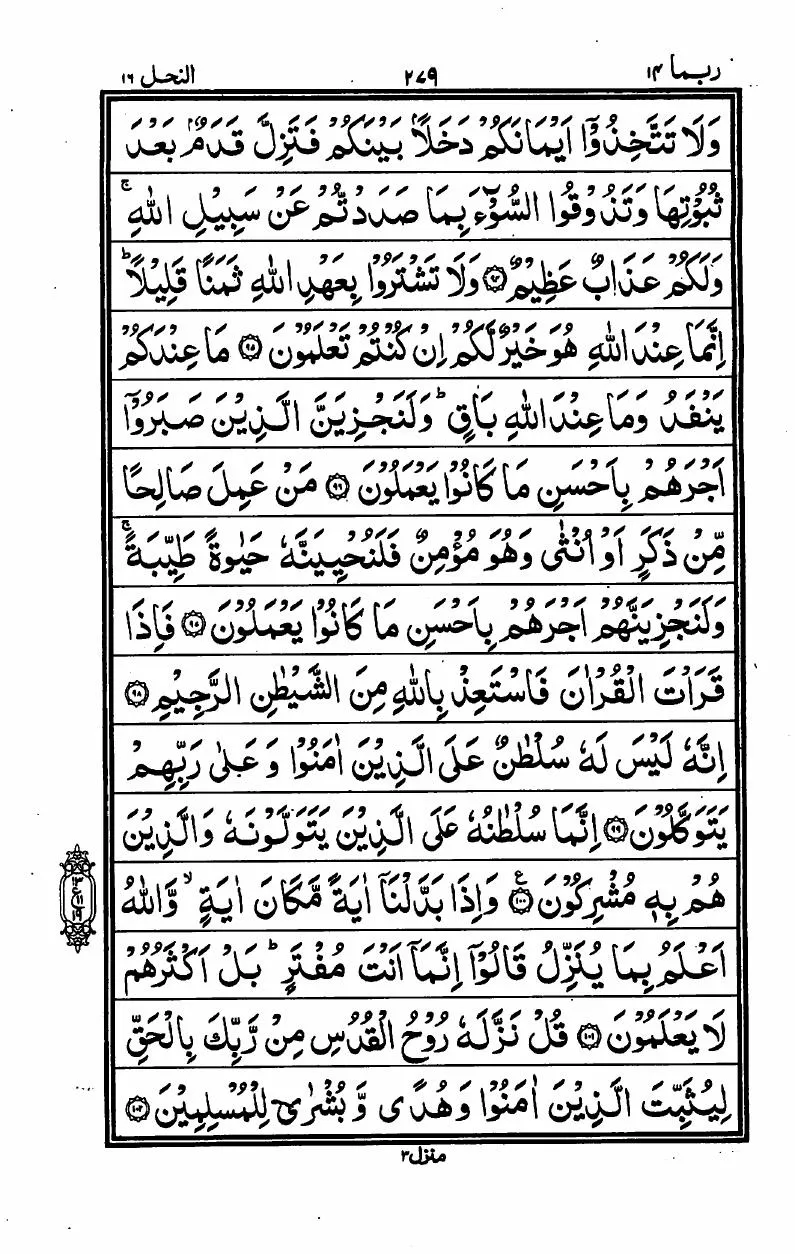 ربما ١٤ ٢٧٩ النحل ١٦
وَلَا تَتَّخِذُوْۤا اَيْمَانَكُمْ دَخَلًاۢ بَيْنَكُمْ فَتَزِلَّ قَدَمٌۢ بَعْدَ
ثُبُوْتِهَا وَتَذُوْقُوا السُّوْۤءَ بِمَا صَدَدْتُّمْ عَنْ سَبِيْلِ اللّٰهِ ۚ
وَلَكُمْ عَذَابٌ عَظِيْمٌ ﴿٩٤﴾ وَلَا تَشْتَرُوْا بِعَهْدِ اللّٰهِ ثَمَنًا قَلِيْلًا ؕ
اِنَّمَا عِنْدَ اللّٰهِ هُوَ خَيْرٌ لَّكُمْ اِنْ كُنْتُمْ تَعْلَمُوْنَ ﴿٩٥﴾ مَا عِنْدَكُمْ
يَنْفَدُ وَمَا عِنْدَ اللّٰهِ بَاقٍ ؕ وَلَنَجْزِيَنَّ الَّذِيْنَ صَبَرُوْۤا
اَجْرَهُمْ بِاَحْسَنِ مَا كَانُوْا يَعْمَلُوْنَ ﴿٩٦﴾ مَنْ عَمِلَ صَالِحًا
مِّنْ ذَكَرٍ اَوْ اُنْثٰى وَهُوَ مُؤْمِنٌ فَلَنُحْيِيَنَّهٗ حَيٰوةً طَيِّبَةً ۚ
وَلَنَجْزِيَنَّهُمْ اَجْرَهُمْ بِاَحْسَنِ مَا كَانُوْا يَعْمَلُوْنَ ﴿٩٧﴾ فَاِذَا
قَرَاْتَ الْقُرْاٰنَ فَاسْتَعِذْ بِاللّٰهِ مِنَ الشَّيْطٰنِ الرَّجِيْمِ ﴿٩٨﴾
اِنَّهٗ لَيْسَ لَهٗ سُلْطٰنٌ عَلَى الَّذِيْنَ اٰمَنُوْا وَعَلٰى رَبِّهِمْ
يَتَوَكَّلُوْنَ ﴿٩٩﴾ اِنَّمَا سُلْطٰنُهٗ عَلَى الَّذِيْنَ يَتَوَلَّوْنَهٗ وَالَّذِيْنَ
هُمْ بِهٖ مُشْرِكُوْنَ ﴿١٠٠﴾ وَاِذَا بَدَّلْنَاۤ اٰيَةً مَّكَانَ اٰيَةٍ ۙ وَّاللّٰهُ
اَعْلَمُ بِمَا يُنَزِّلُ قَالُوْۤا اِنَّمَاۤ اَنْتَ مُفْتَرٍ ؕ بَلْ اَكْثَرُهُمْ
لَا يَعْلَمُوْنَ ﴿١٠١﴾ قُلْ نَزَّلَهٗ رُوْحُ الْقُدُسِ مِنْ رَّبِّكَ بِالْحَقِّ
لِيُثَبِّتَ الَّذِيْنَ اٰمَنُوْا وَهُدًى وَّبُشْرٰى لِلْمُسْلِمِيْنَ ﴿١٠٢﴾
منزل ٣